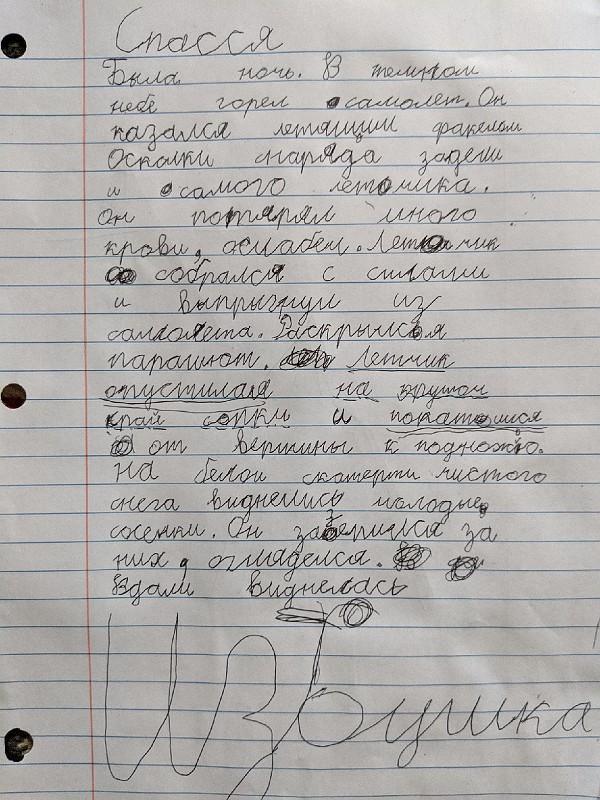 Спасся
Была ночь. В темном
небе горел самолет. Он
казался летящим факелом
Осколки снаряда задели
и самого летчика.
Он потярял много
крови, ослабел. Летчик
собрался с силами
и выпрыгнул из
самолета. Раскрылся
парашют. Летчик
опустилая на крутой
край сопки и покатился
от вершины к подножю.
На белой скатерти чистого
снега виднелись молодые
сосенки. Он зацепился за
них, огляделся.
Вдали виднелась
Избушка